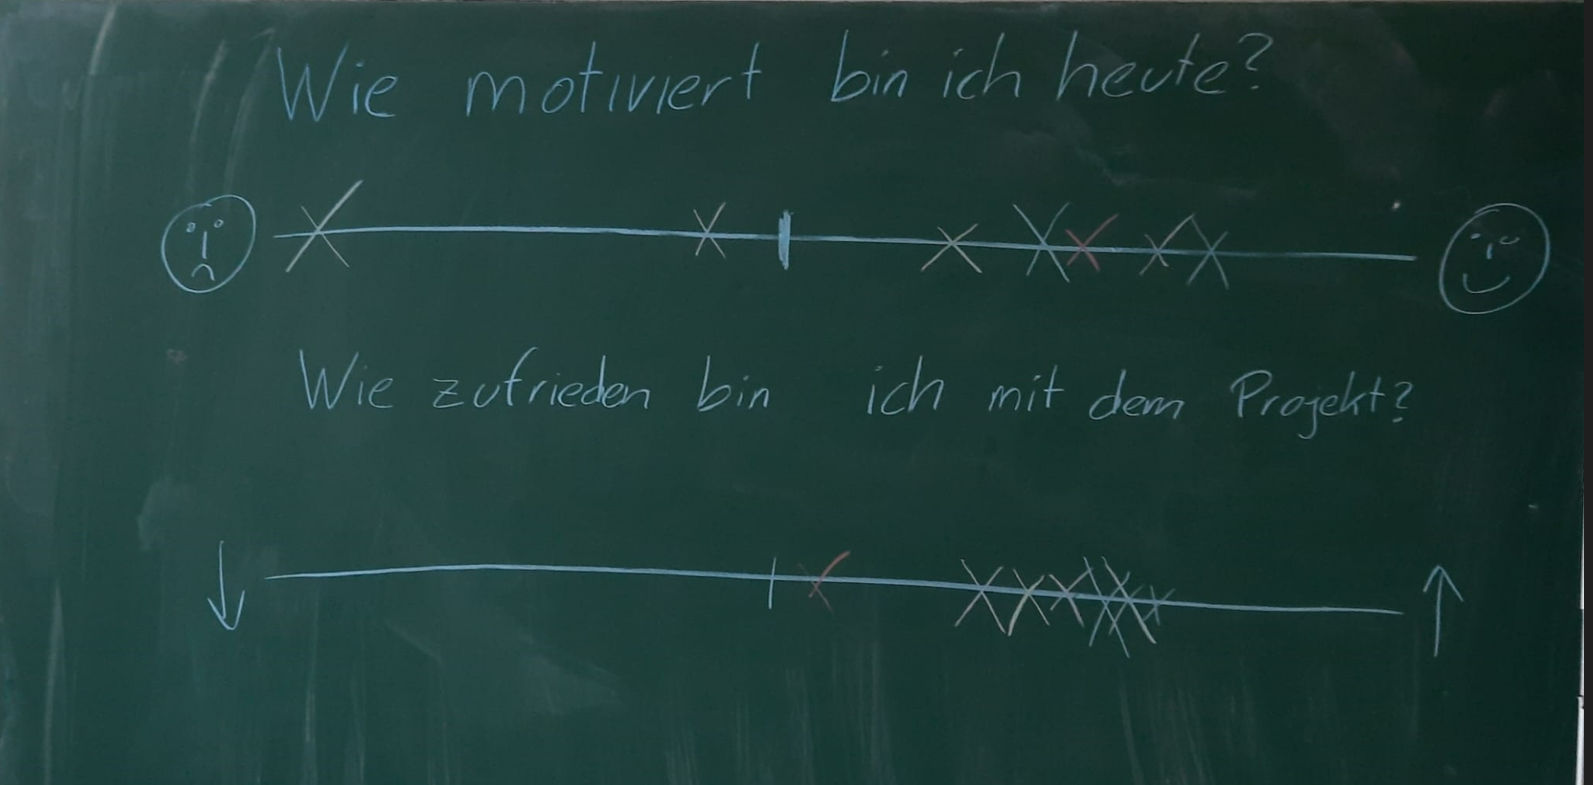 Wie motiviert bin ich heute?
Wie zufrieden bin ich mit dem Projekt?